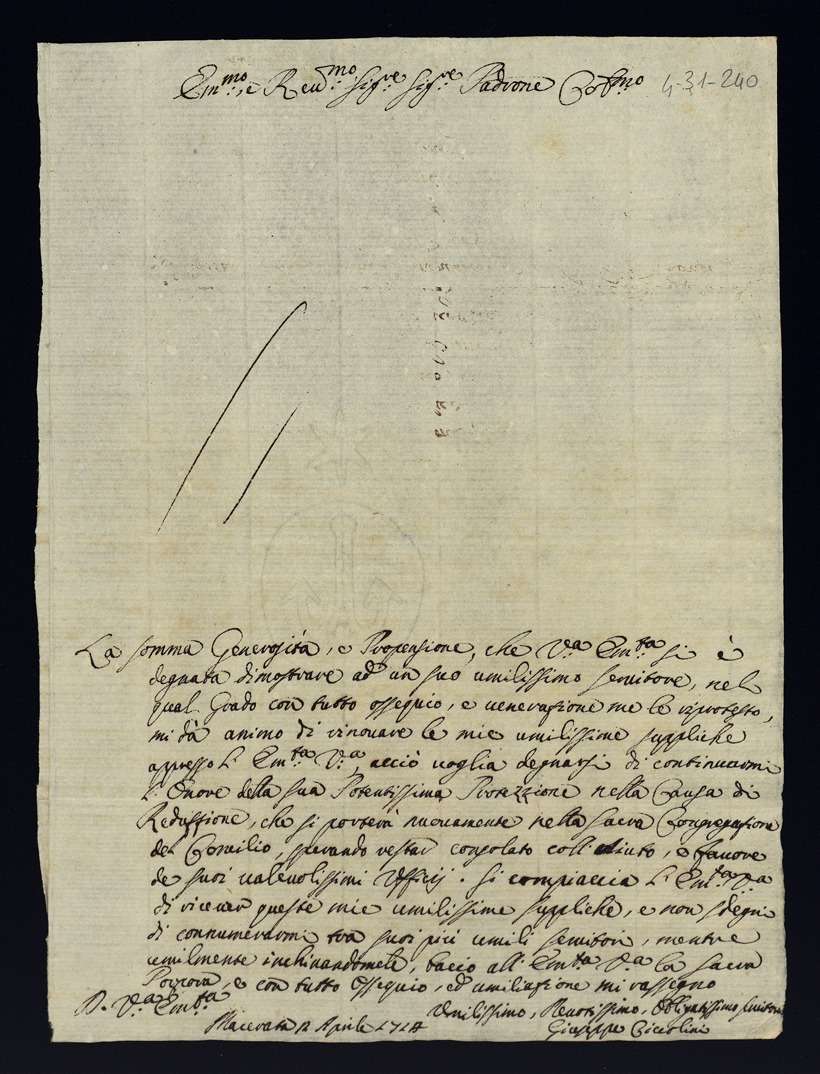 Em.mo, e Reu.mo Sig.re Sig.re Padrone Col.mo 4-31-240
La somma Generosità, e Propensione, che V.a Em.ta si è
degnata dimostrare ad un suo umilissimo seruitore, nel
qual Grado con tutto ossequio, e uenerazione me le riprotesto,
mi dà animo di rinouare le mie umilissime suppliche
appresso l' Em.ta V.a, acciò uoglia degnarsi di continuarmi
l' Onore della sua Potentissima Protezzione nella Causa di
Reduzzione, che si porterà nuouamente nella Sacra Congregazione
del Concilio, sperando restar consolato coll' aiuto, e fauore
de suoi ualeuolissimi Vfficij. Si compiaccia l' Em.ta V.a
di riceuer queste mie umilissime suppliche, e non sdegni
di connumerarmi tra suoi più umili seruitori, mentre
umilmente inchinandomele, bacio all' Em.ta V.a la Sacra
Porpora, e con tutto ossequio, ed umiliazione mi rassegno
D. V.a Em.ta
Vmilissimo, Deuotissimo, Obligatissimo Seruitore
Macerata Aprile 1714
Giuseppe Ciccolini